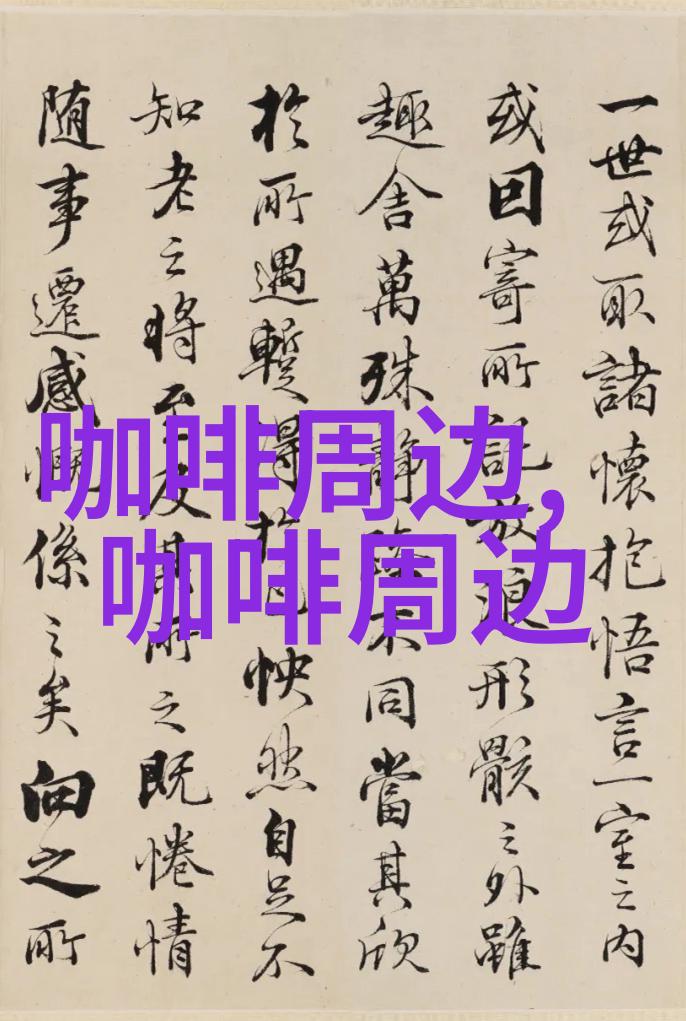 一世或取諸懷抱悟言一室之內
或因寄所託放浪形骸之外雖
趣舍萬殊靜躁不同當其欣
於所遇蹔得於己怏然自足不
知老之將至及其所之既惓情
随事遷感慨係之矣向之所
咖啡周边,
咖啡周边